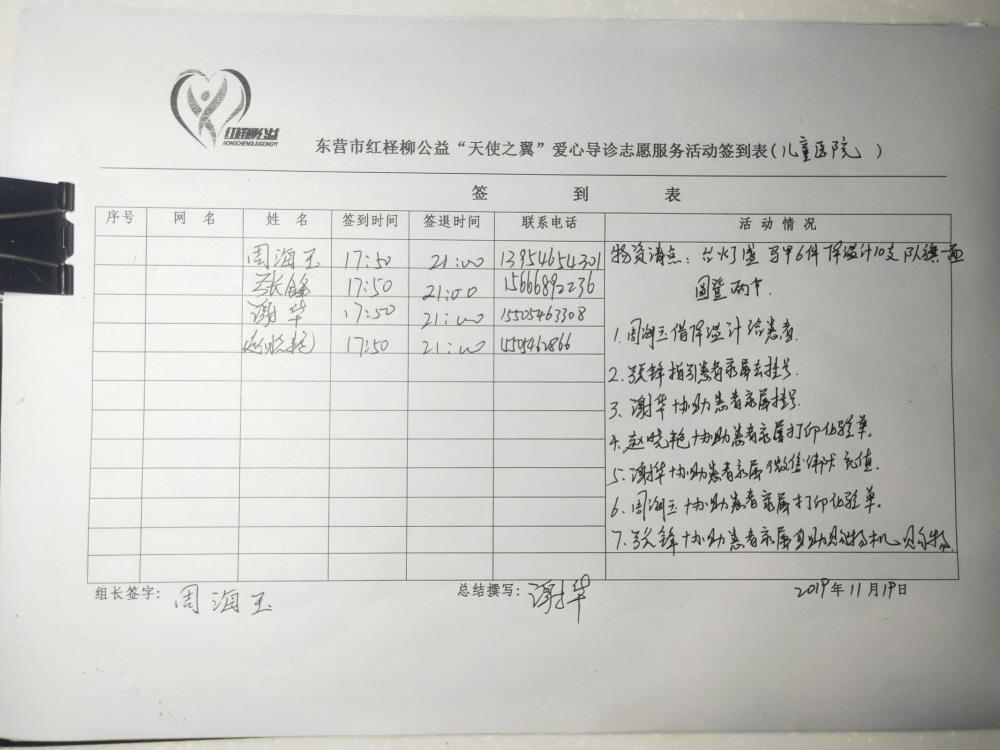 红柽柳公益
HONGCHENGLIUGONGYI
东营市红柽柳公益“天使之翼”爱心导诊志愿服务活动签到表(儿童医院 )
签 到 表
序号 网 名 姓 名 签到时间 签退时间 联系电话 活 动 情 况
周海玉 17:50 21:00 13954654301
张锋 17:50 21:00 15666892236
谢华 17:50 21:00 15505463308
17:50 21:00
物资清点: 台灯 马甲6件 体温计10支 队旗一面
两个.
1.周海玉借体温计给患者.
2.张锋指引患者家属去挂号.
3.谢华协助患者家属挂号.
4.赵晓艳协助患者家属打印化验单.
5.谢华协助患者家属微信 充值.
6.周海玉协助患者家属打印化验单.
7.张锋协助患者家属自助购物机购物.
组长签字: 周海玉 总结撰写: 谢华 2019年11月19日